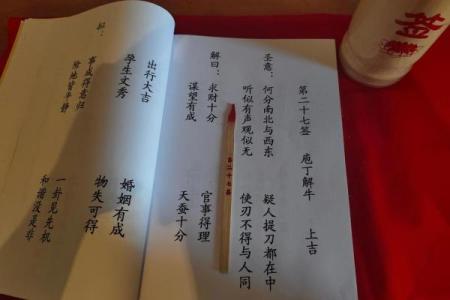 第二十七签 庖丁解牛 上吉
圣意：何分南北与西东 疑人提刀都在中
听似有声观似无 使刃不得与人同
解曰：求财十分 官事得理
谋望有成 天蚕十分
出行大吉 婚姻有成
孕生丈秀 物失可得
事成得意归 一卦见先机
地皆平静 和谐没是非
第二十七签
签